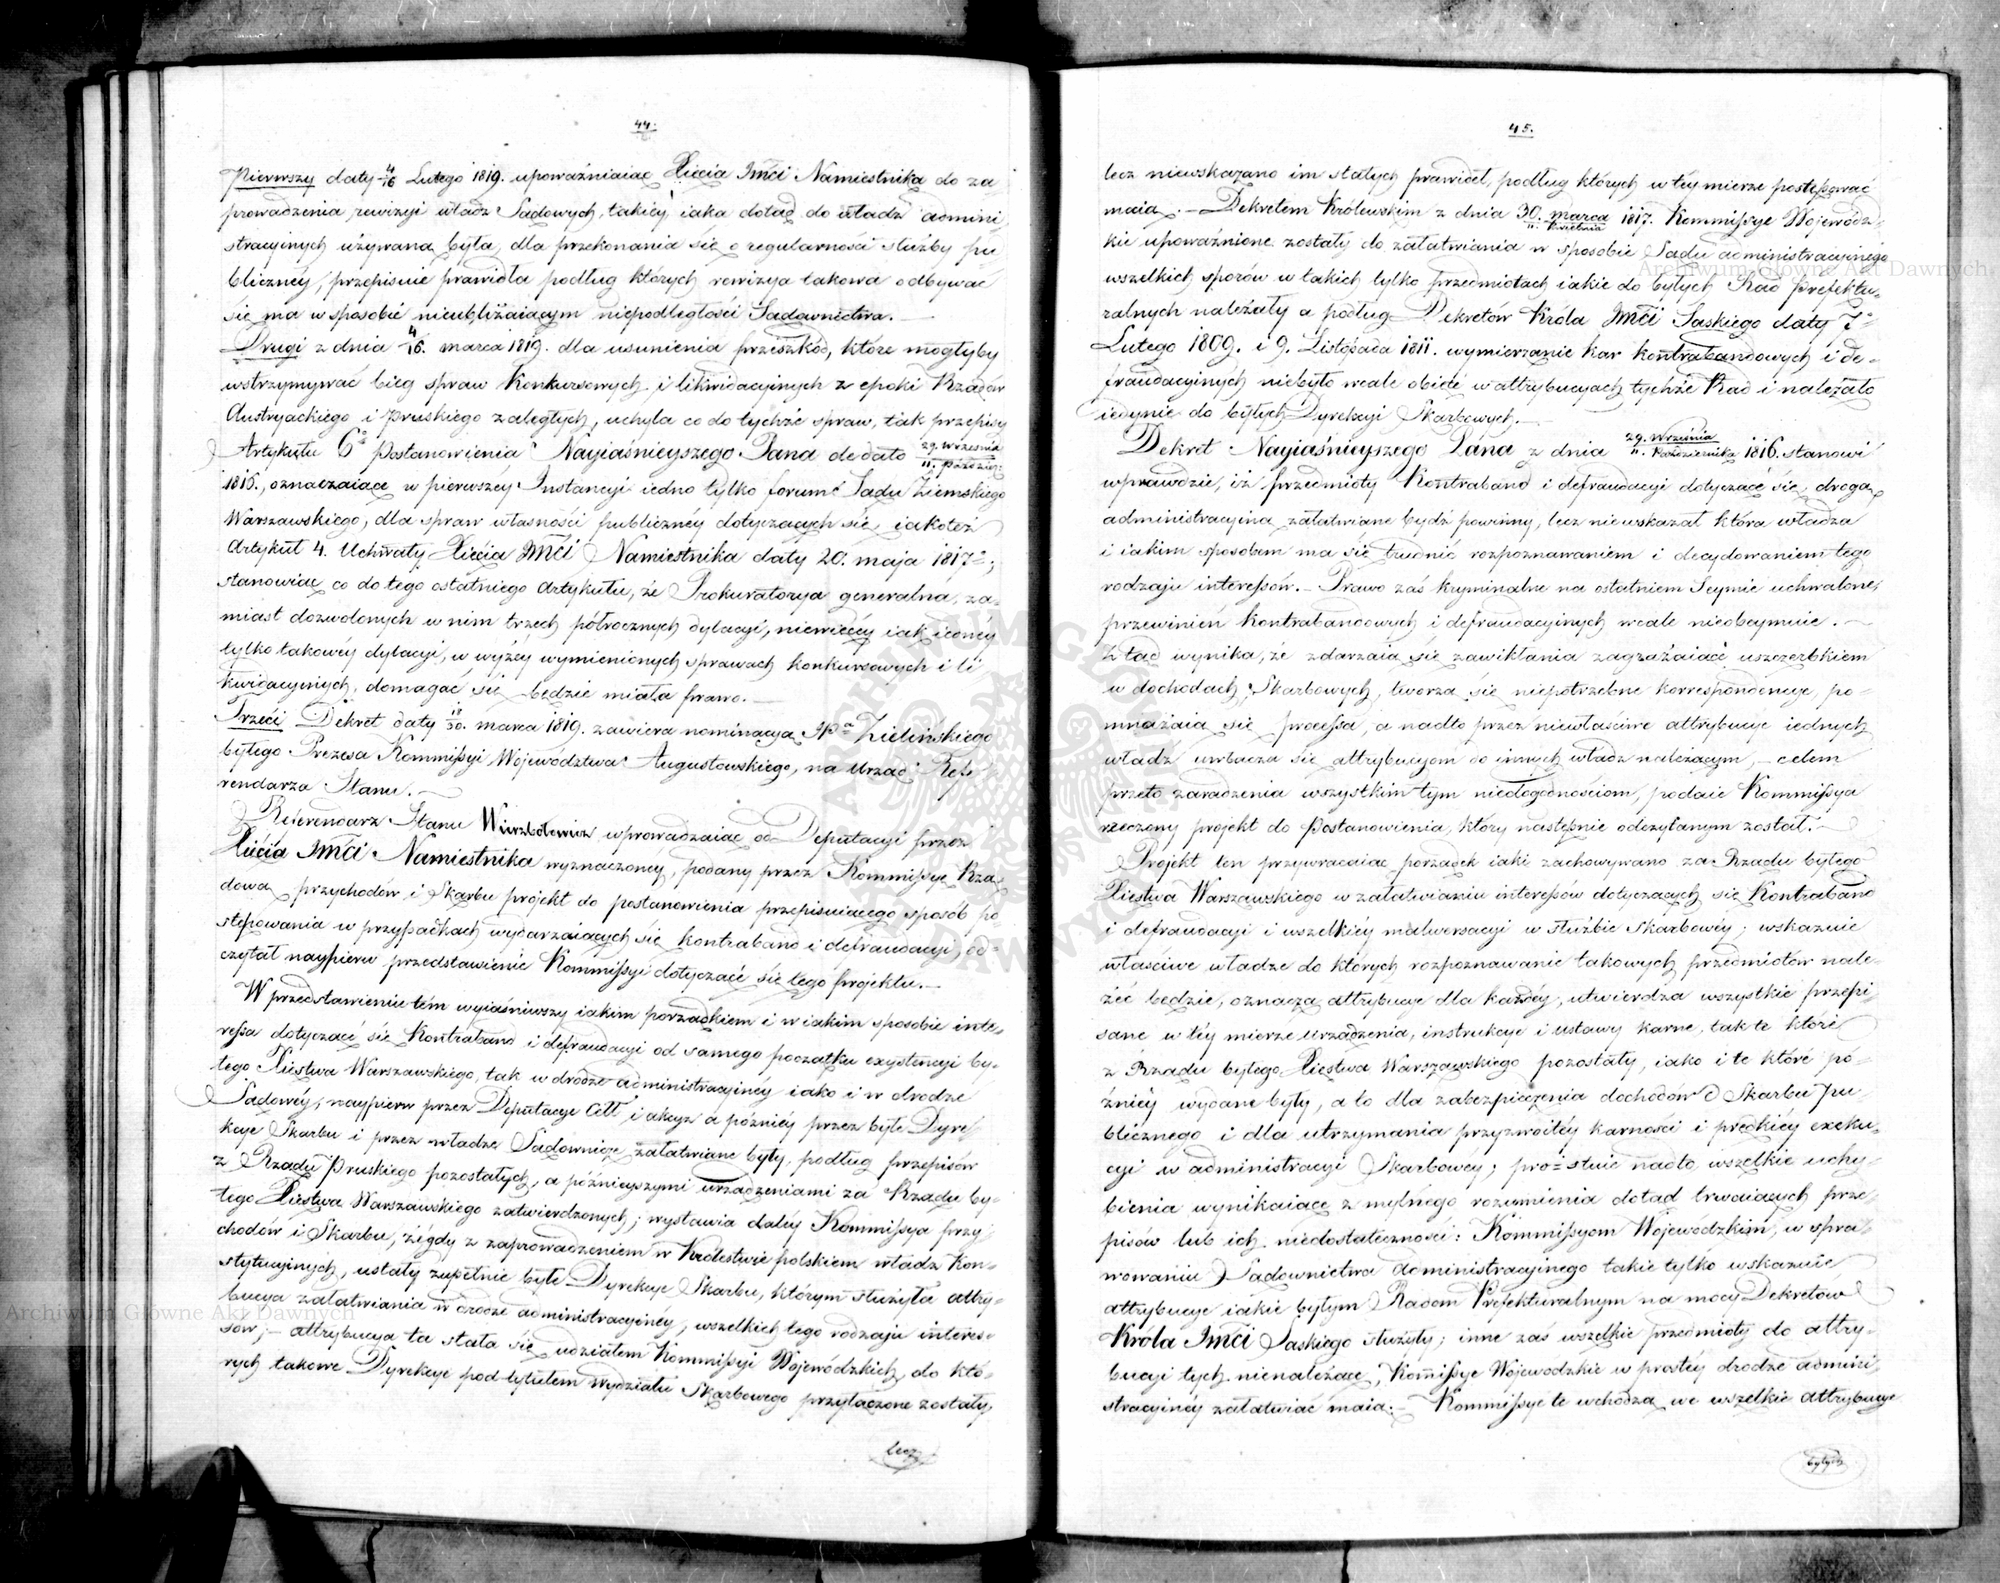 44.
Pierwszy daty 4/16 Lutego 1819. upoważniaiąc Xięcia JMCi Namiestnika do za
prowadzenia rewizyi władz Sądowych, takiéy iaka dotąd do władz admini
stracyinych używaną była, dla przekonania się o regularności służby pu
bliczney, przepisuie prawidła podług których rewizya takowa odbywać
się ma w sposobie nieubliżaiącym niepodległości Sądownictwa. —
Drugi z dnia 4/16. marca 1819. dla usunienia przeszkód, które mogłyby
wstrzymywać bieg spraw Konkursowych i likwidacyinych z epoki Rządów
Austryackiego i Pruskiego zaległych, uchyla co do tychże spraw, tak przepisy
Artykułu 6o Postanowienia Nayiaśnieyszego Pana de dato 29. Września / 11. Paździer:
1816., oznaczaiące w pierwszey Instancyi iedno tylko forum Sądu Ziemskiego
Warszawskiego, dla spraw własności publicznéy dotyczących się, iakoteż
Artykuł 4. Uchwały Xięcia JMCi Namiestnika daty 20. maja 1817o;
stanowiąc co do tego ostatniego Artykułu, że Prokuratorya generalna, za-
miast dozwolonych w nim trzech półrocznych dylacyi, niewięcéy iak iednéy
tylko takowéy dylacyi, w wyżéy wymienionych sprawach konkursowych i li
kwidacyinych, domagać się będzie miała prawo. —
Trzeci Dekret daty 18/30. marca 1819. zawiera nominacyą JPa Zielińskiego
byłego Prezesa Kommissyi Województwa Augustowskiego, na Urząd Refe
rendarza Stanu. —
Referendarz Stanu Wierzbołowicz wprowadzaiąc od Deputacyi przez
Xięcia JMCi Namiestnika wyznaczoney, podany przez Kommissyę Rzą-
dową przychodów i Skarbu projekt do postanowienia przepisuiącego sposób po
stępowania w przypadkach wydarzaiących się kontraband i defraudacyi, od-
czytał naypierw przedstawienie Kommissyi dotyczące się tego projektu. —
W przedstawieniu tém wyiaśniwszy iakim porządkiem i w iakim sposobie inte-
ressa dotyczące się Kontraband i defraudacyi od samego początku exystencyi by-
łego Xięstwa Warszawskiego, tak w drodze administracyiney iako i w drodze
Sądowéy, naypierw przez Deputacye Cełł i akcyz a późniéy przez byłe Dyre
kcye Skarbu i przez władze Sądownicze załatwiane były, podług przepisów
z Rządu Pruskiego pozostałych, a późnieyszymi urządzeniami za Rządu by-
łego Xięstwa Warszawskiego zatwierdzonych; wystawia daléy Kommissya przy-
chodów i Skarbu, że gdy z zaprowadzeniem w Królestwie polskiem władz Kon-
stytucyinych, ustały zupełnie byłe Dyrekcye Skarbu, którym służyła attry-
bucya załatwiania w drodze administracyinéy, wszelkich tego rodzaju interes-
sów; — attrybucya ta stała się udziałem Kommissyi Wojewódzkich, do któ-
rych takowe Dyrekcye pod tytułem Wydziału Skarbowego przyłączone zostały,
lecz
45.
lecz niewskazano im stałych prawideł, podług których w téy mierze postępować
maią. — Dekretem Królewskim z dnia 30. marca / 11. Kwietnia 1817. Kommissye Wojewódz-
kie upoważnione zostały do załatwiania w sposobie Sądu administracyinego
wszelkich sporów w takich tylko przedmiotach iakie do byłych Rad Prefektu-
ralnych należały a podług Dekretów Króla JMCi Saskiego daty 7o
Lutego 1809. i 9. Listopada 1811. wymierzanie kar kontrabandowych i de-
fraudacyinych niebyło wcale obięte w attrybucyach tychże Rad i należało
iedynie do byłych Dyrekcyi Skarbowych. —
Dekret Nayiaśnieyszego Pana z dnia 29. Września / 11. Października 1816. stanowi
wprawdzie, iż przedmioty Kontraband i defraudacyi dotyczące się, drogą
administracyiną załatwiane bydź powinny, lecz niewskazał która władza
i iakim sposobem ma się trudnić rozpoznawaniem i decydowaniem tego
rodzaju interessów. — Prawo zaś kryminalne na ostatniem Seymie uchwalone,
przewinień Kontrabandowych i defraudacyinych wcale nieobeymuie. —
Ztąd wynika, że zdarzaią się zawikłania zagrażaiące uszczerbkiem
w dochodach Skarbowych, tworzą się niepotrzebne korrespondencye, po-
mnażaią się processa, a nadto przez niewłaściwe attrybucye iednych
władz uwłacza się attrybucyom do innych władz należącym, — celem
przeto zaradzenia wszystkim tym niedogodnościom, podaie Kommissya
rzeczony projekt do Postanowienia, który następnie odczytanym został. —
Projekt ten przywracaiąc porządek iaki zachowywano za Rządu byłego
Xięstwa Warszawskiego w załatwianiu interessów dotyczących się Kontraband
i defraudacyi i wszelkiéy malwersacyi w służbie Skarbowéy; wskazuie
właściwe władze do których rozpoznawanie takowych przedmiotów nale-
żeć będzie, oznacza attrybucye dla każdéy, utwierdza wszystkie przepi-
sane w téy mierze urządzenia, instrukcye i ustawy karne, tak te które
z Rządu byłego Xięstwa Warszawskiego pozostały, iako i te które pó-
źniéy wydane były, a to dla zabezpieczenia dochodów Skarbu Pu-
blicznego i dla utrzymania przyzwoitéy karności i prędkiéy exeku-
cyi w administracyi Skarbowéy; prostuie nadto wszelkie uchy-
bienia wynikaiące z mylnego rozumienia dotąd trwaiących prze-
pisów lub ich niedostateczności: Kommissyom Wojewódzkim, w spra-
wowaniu Sądownictwa administracyinego takie tylko wskazuie
attrybucye iakie byłym Radom Prefekturalnym na mocy Dekretów
Króla JMCi Saskiego służyły; inne zaś wszelkie przedmioty do attry-
bucyi tych nienależące, Kommissye Wojewodzkie w prostéy drodze admini-
stracyinéy załatwiać maią. — Kommissye te wchodzą we wszelkie attrybucye
byłych
Archiwum Główne Akt Dawnych
Archiwum Główne Akt Dawnych
ARCHIWUM GŁÓWNE AKT DAWNYCH